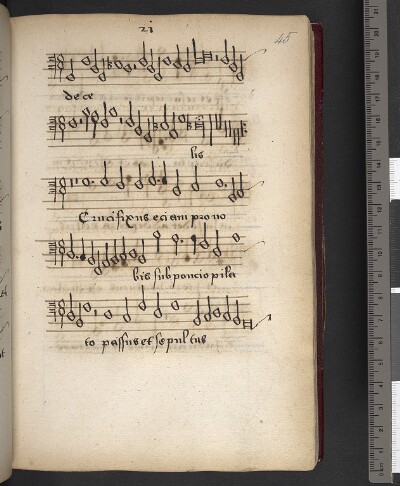 21
45
de ce
lis
Crucifixus eciam pro no
bis sub poncio pila
to passus et sepultus